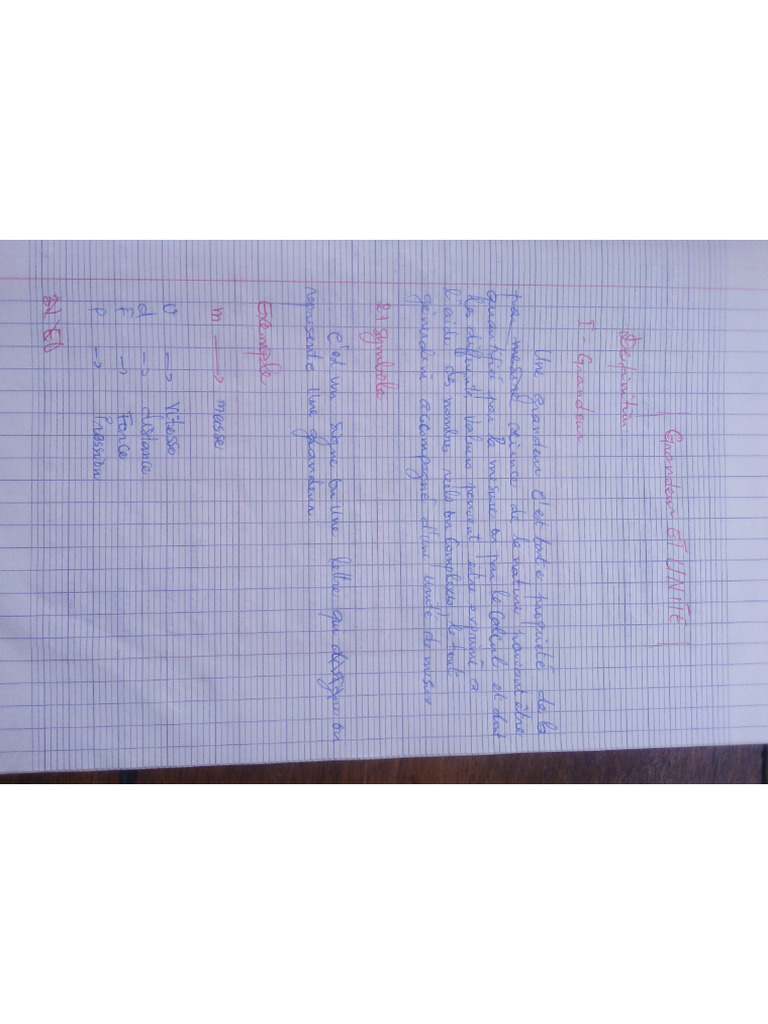 Grandeur ET UNITE
Definition
I - Grandeur
Une grandeur C'est toute propriété de la
science de la nature pouvant être
quantifié par la mesure ou par le Calcul et dont
les différents Valeurs peuvent être exprimé a
l'aide de nombre réels ou Complexes, le tout
accompagné d'une unité de mesure
2) Symbole
C'est un Signe ou Une lettre qui désigne ou
represente Une grandeur.
Exemple
m → masse
V → Vitesse
d → distance
F → Force
P → Pression